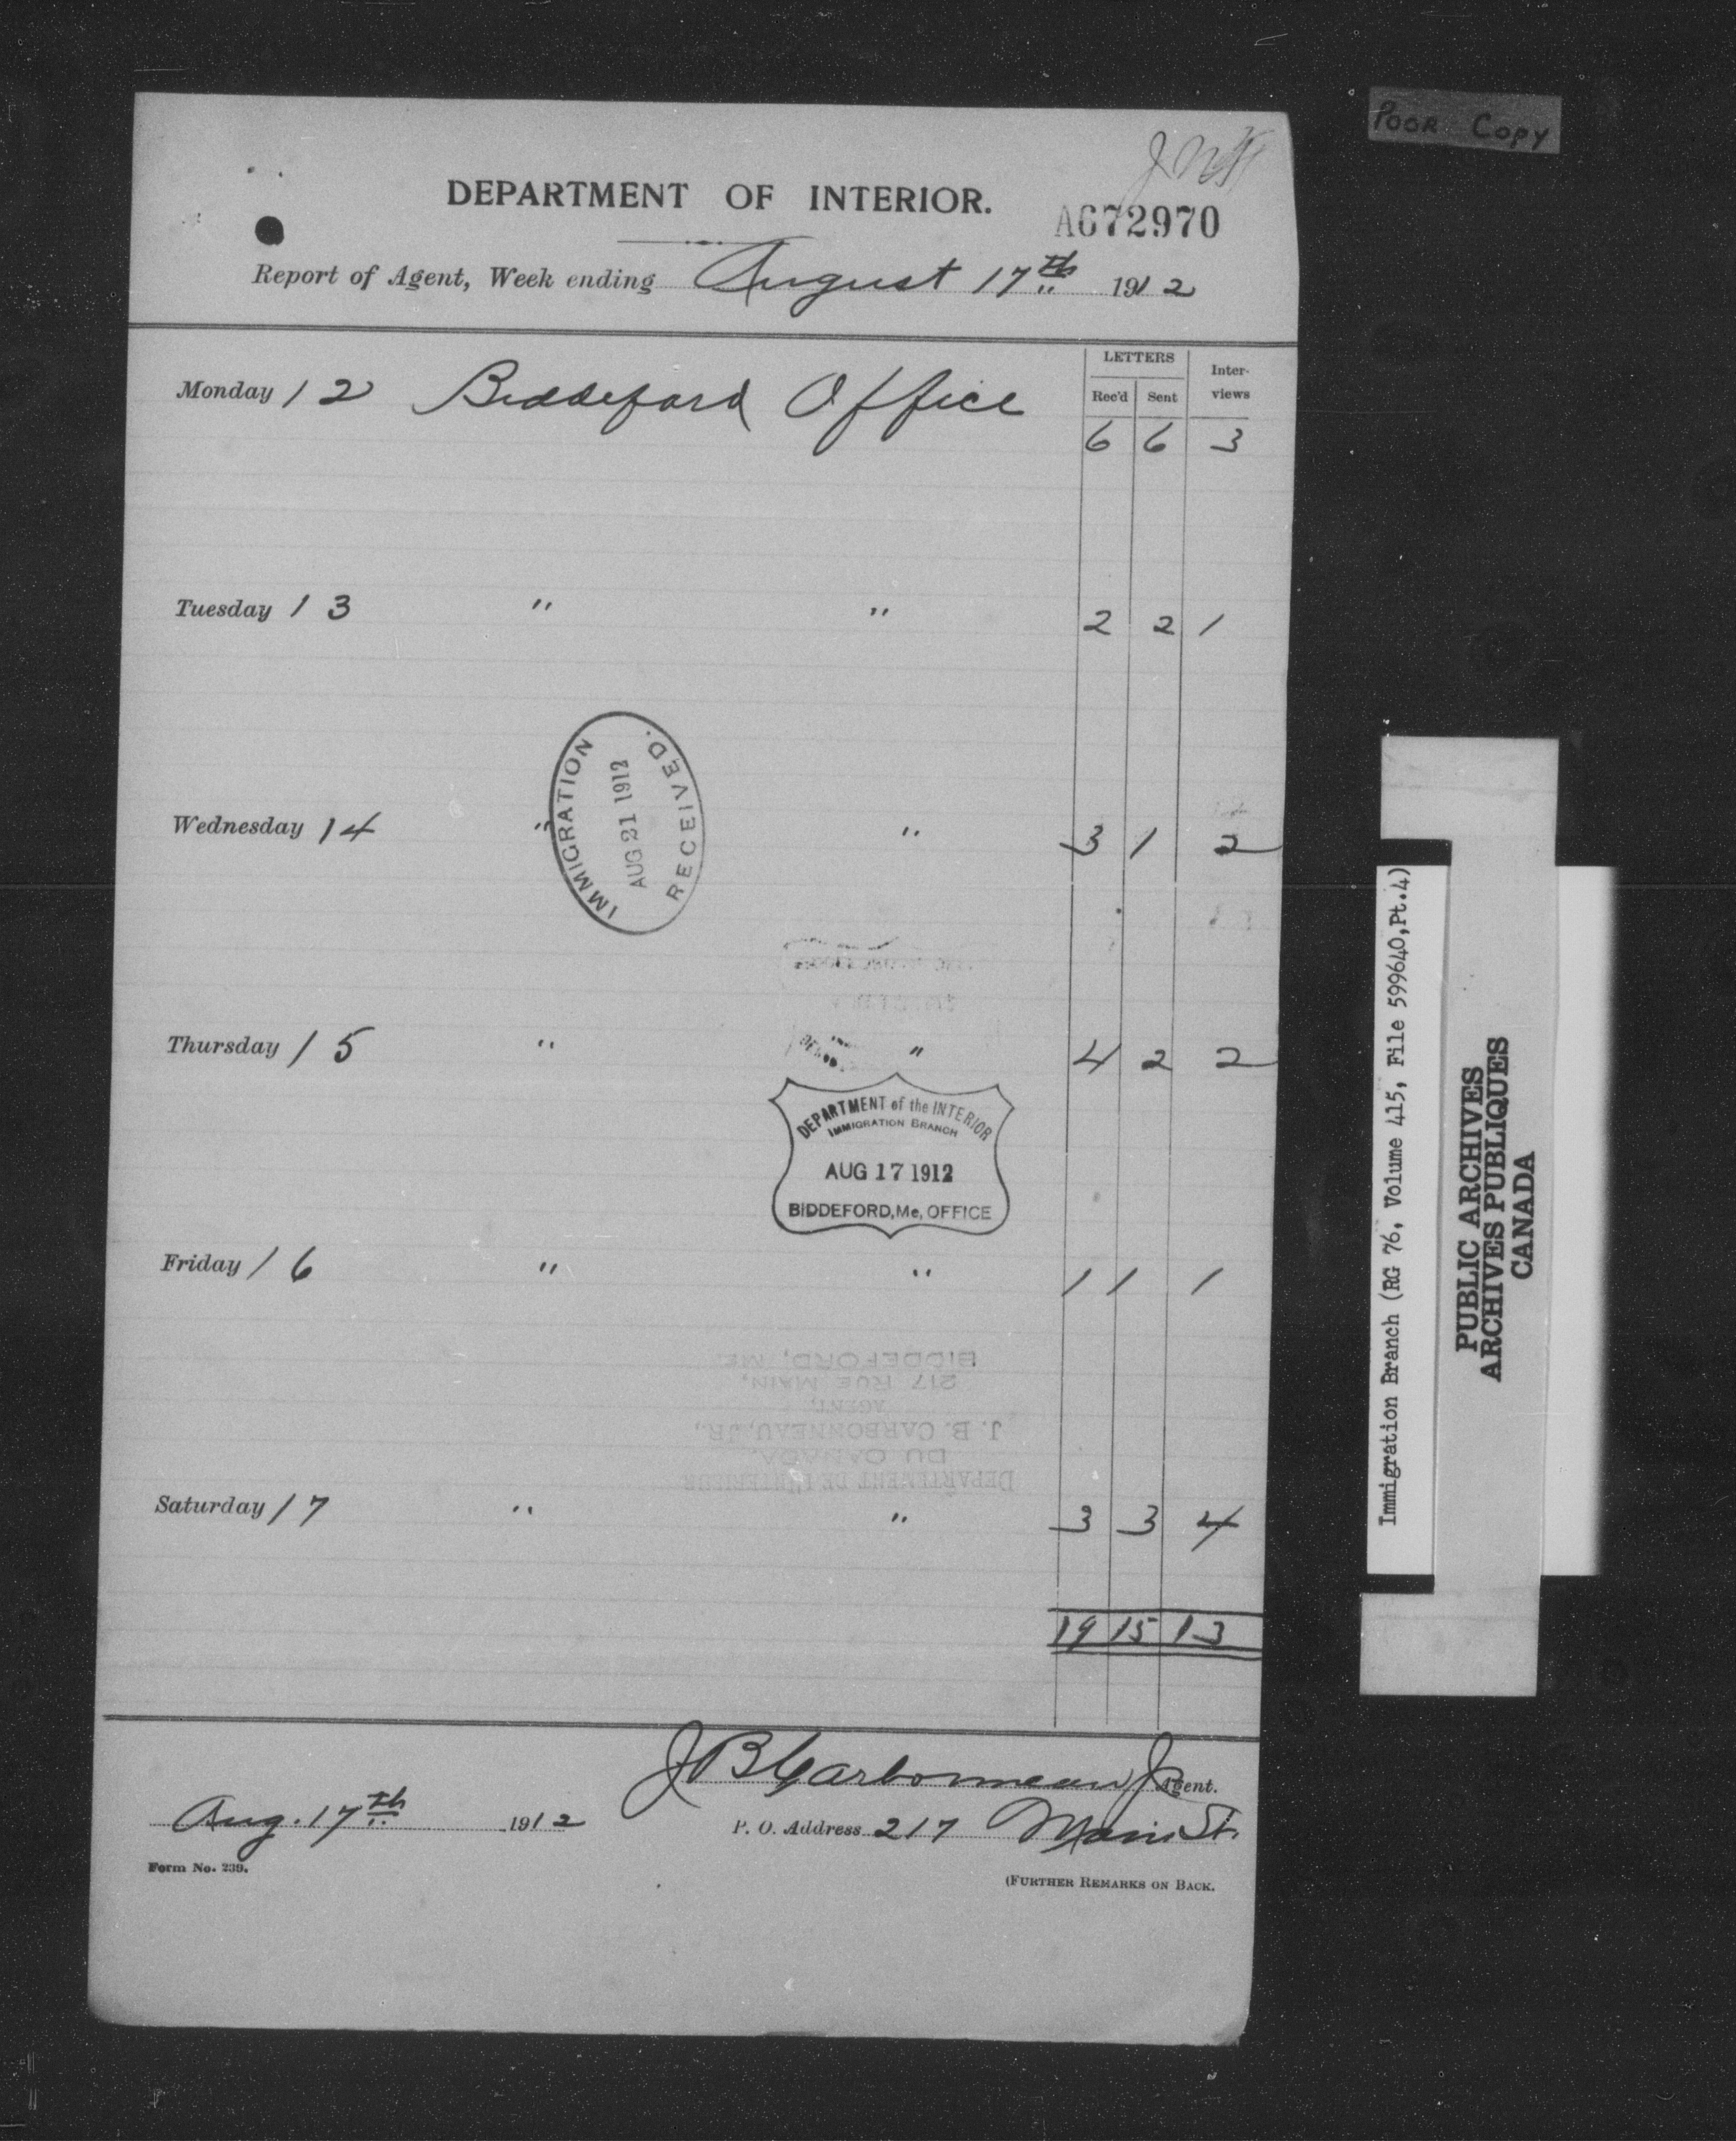 POOR COPY
DEPARTMENT OF INTERIOR.
A672970
Report of Agent, Week ending August 17th 1912
LETTERS
Inter-
views
Rec'd Sent
Monday 12 Biddeford Office
6 6 3
Tuesday 13 " " 2 2 1
IMMIGRATION
AUG 21 1912
RECEIVED.
Wednesday 14 " " 3 1 2
Thursday 15 " " 4 2 2
DEPARTMENT of the INTERIOR
IMMIGRATION BRANCH
AUG 17 1912
BIDDEFORD, Me, OFFICE
Friday 16 " " 1 1 1
BIDDEFORD, ME.
217 RUE MAIN,
AGENT,
J. B. CARBONNEAU, JR.,
DU CANADA,
DEPARTEMENT DE L'INTERIEUR
Saturday 17 " " 3 3 4
19 15 13
J B Carbonneau Jr Agent.
Aug. 17th 1912 P. O. Address 217 Main St.
Form No. 239.
(FURTHER REMARKS ON BACK.
Immigration Branch (RG 76, Volume 415, File 599640,Pt.4)
PUBLIC ARCHIVES
ARCHIVES PUBLIQUES
CANADA